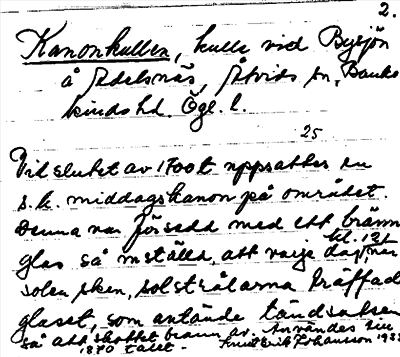 2.
Kanonkullen, kulle vid Bysjön
å Adelsnäs, Åtvids sn, Banke
kinds hd. Ögl. l.
25
Vid slutet av 1700t uppsattes en
s.k. middagskanon på området.
Denna var försedd med ett bränn
glas så inställd, att varje dag, när kl. 12
solen sken, solstrålarna träffade
glaset, som antände tändsatsen
så att skottet brann av. Användes till
1870 talet. - Knut Erik Johansson 193